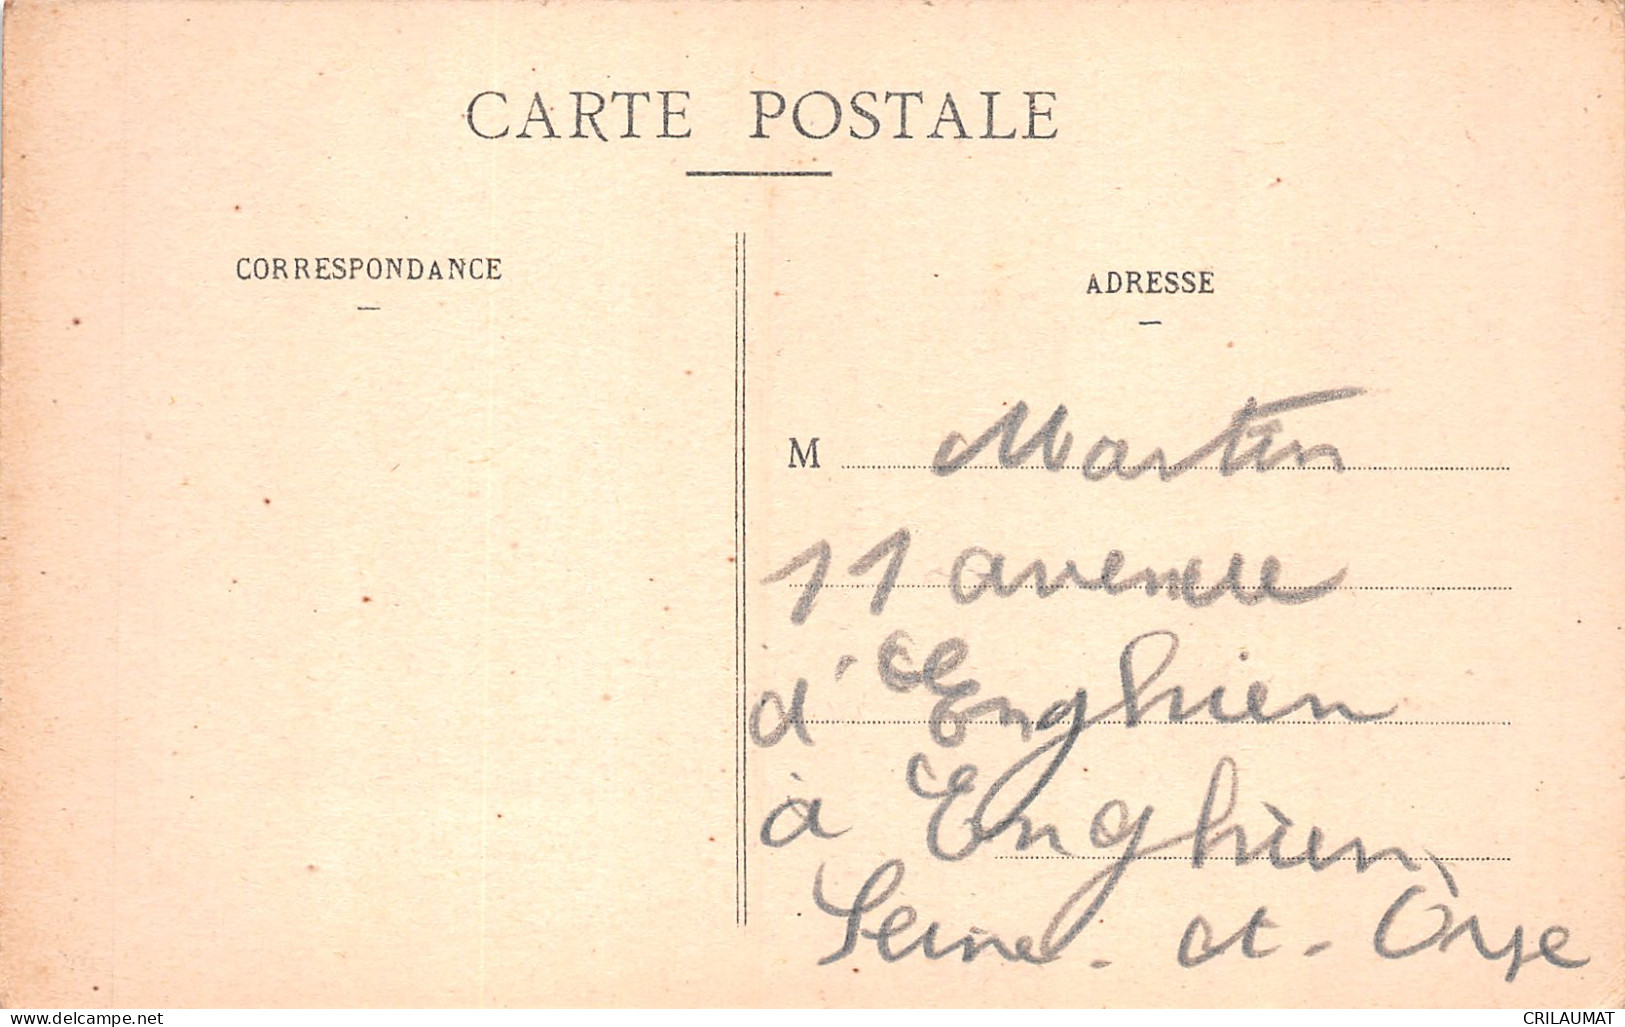 CARTE POSTALE
CORRESPONDANCE
ADRESSE
M Martin
11 avenue
d'Enghien
à Enghien
Seine-et-Oise
www.delcampe.net
CRILAUMAT